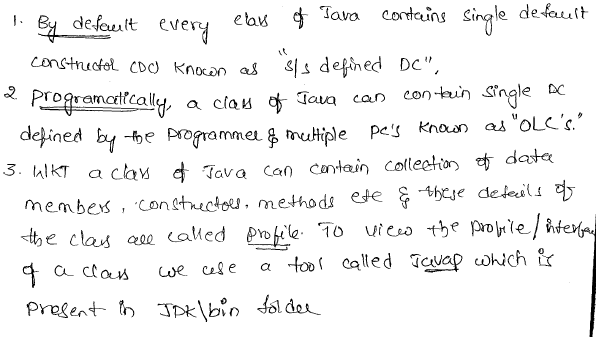 1. By default every class of Java contains single default
constructor (DC) known as "s/s defined DC",
2 programatically, a class of Java can contain single DC
defined by the programmer & multiple PC's known as "OLC's."
3. WKT a class of Java can contain collection of data
members, constructors, methods etc & these details of
the class are called profile. To view the profile/interface
of a class we use a tool called Javap which is
present in JDK\bin folder